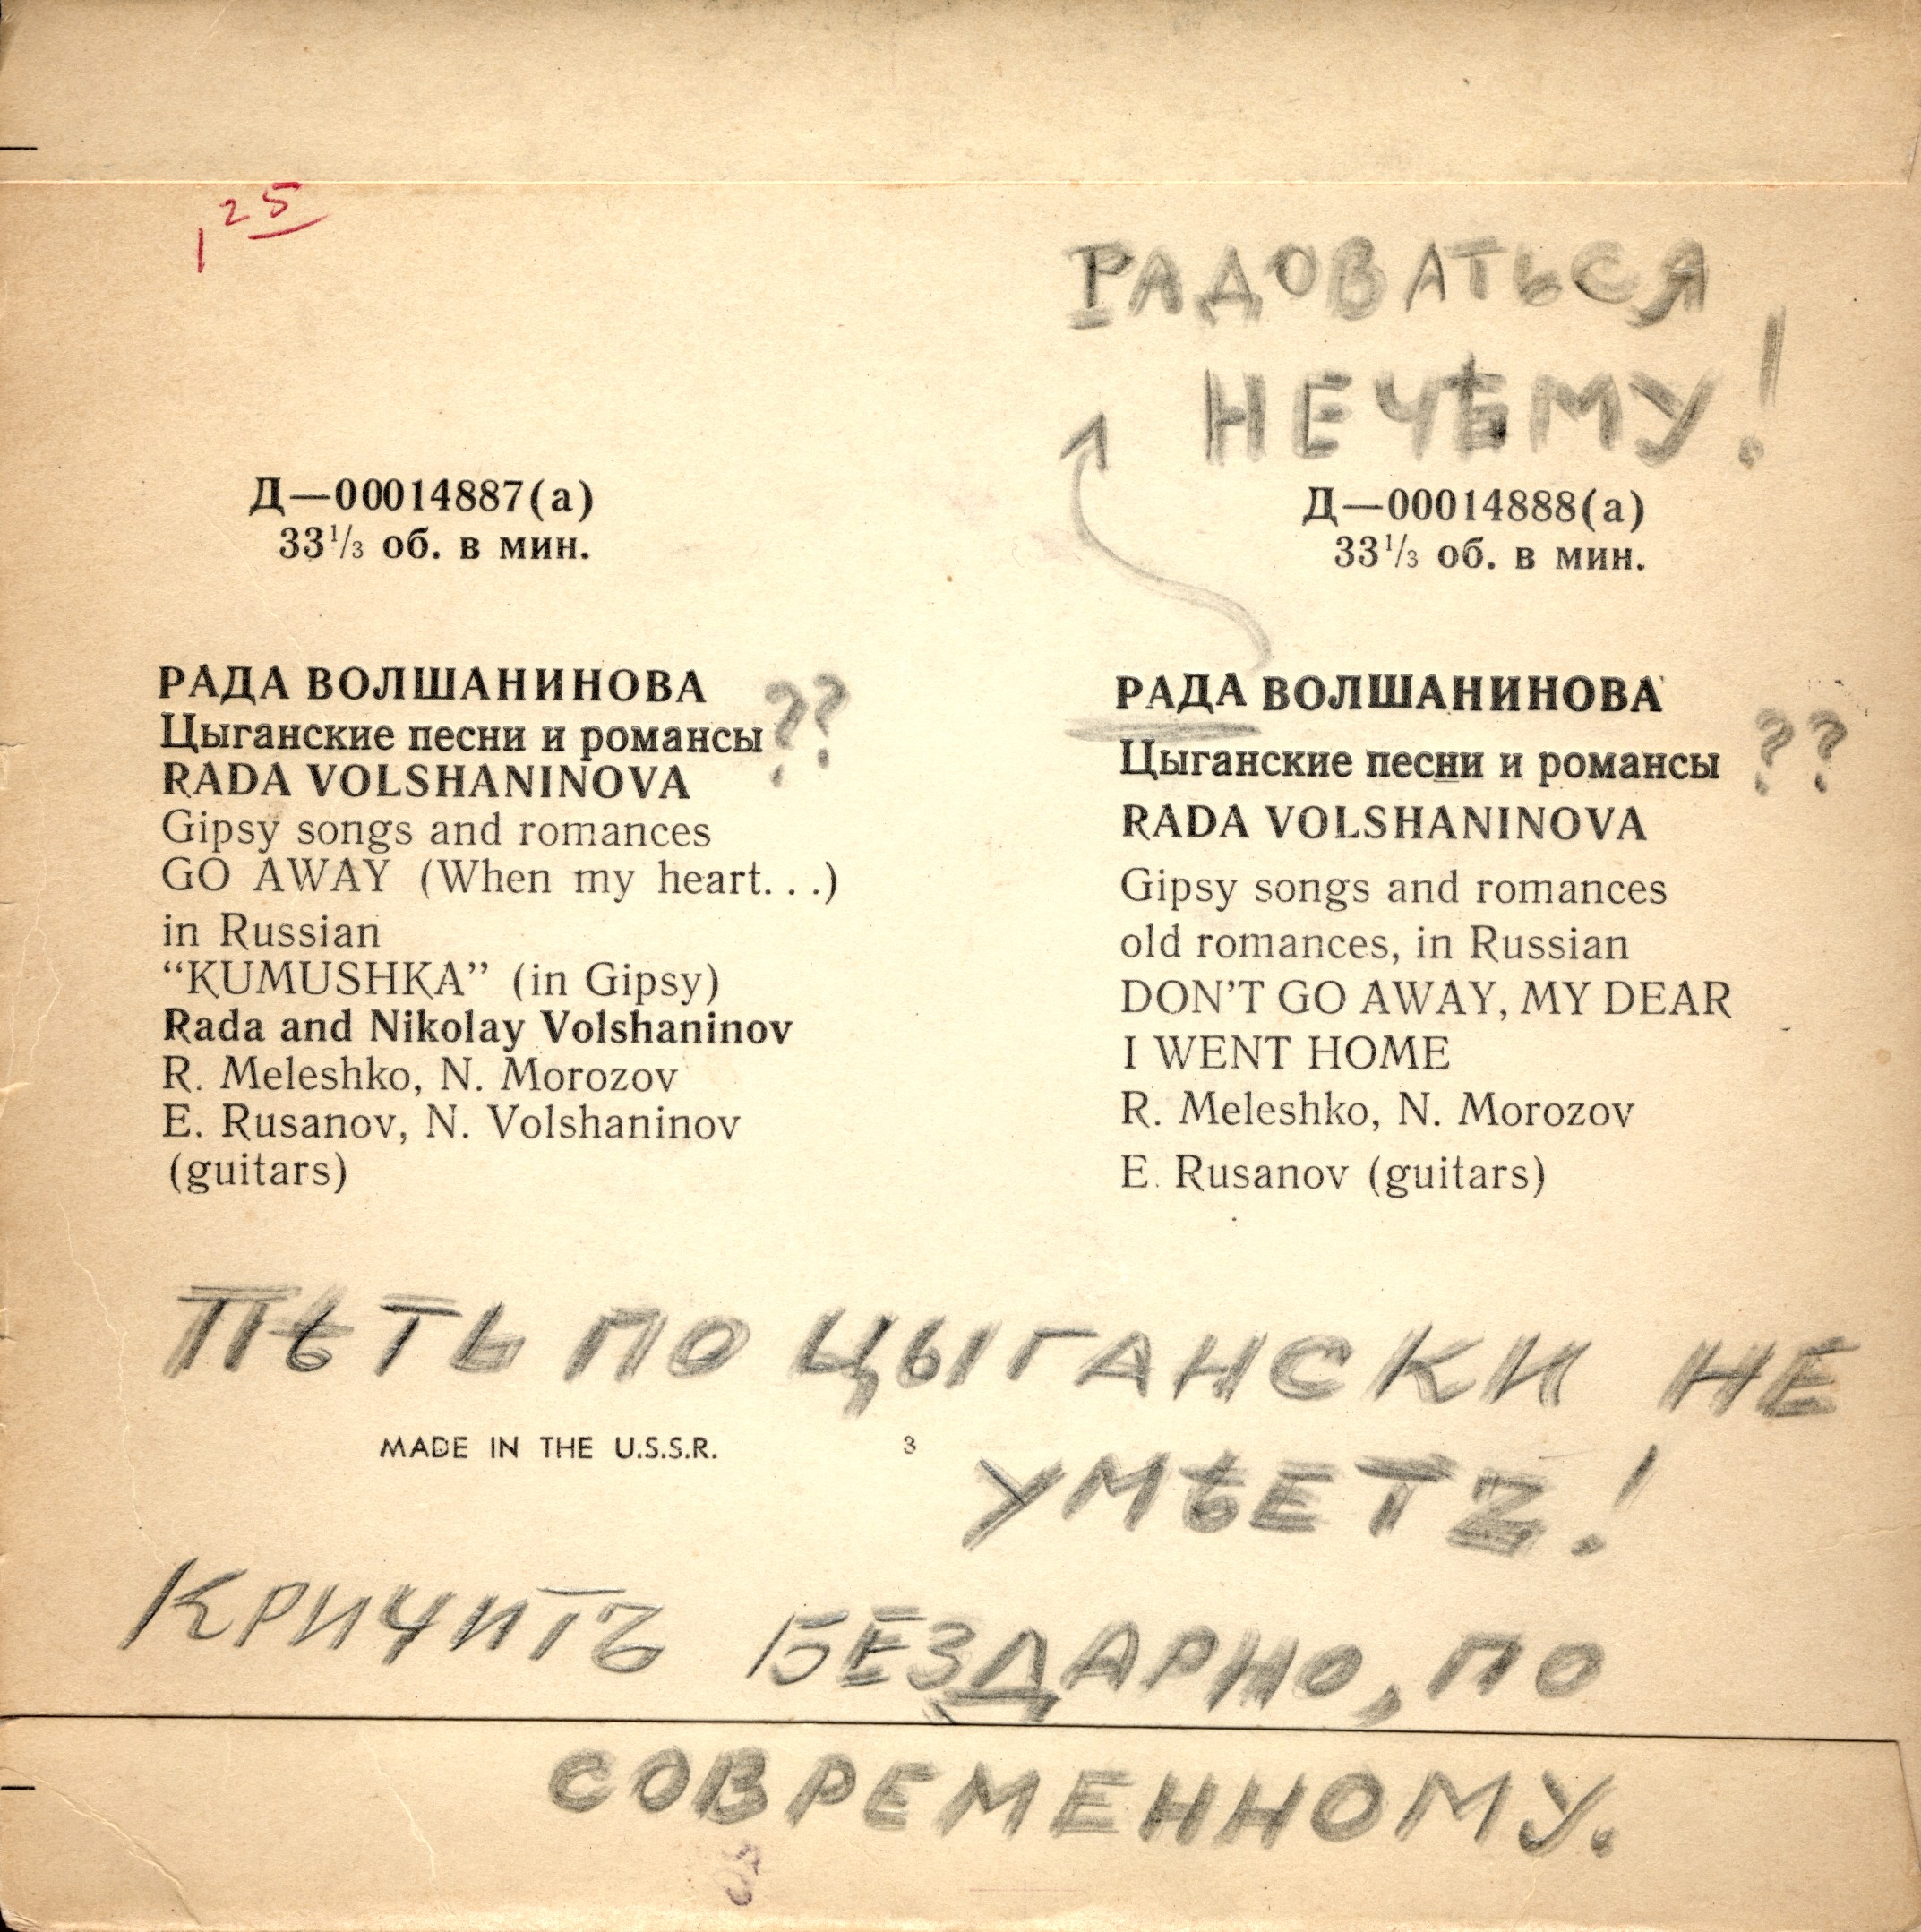 1 25
РАДОВАТЬСЯ
НЕЧѢМУ!
Д—00014887(а)
33¹/₃ об. в мин.
РАДА ВОЛШАНИНОВА ??
Цыганские песни и романсы
RADA VOLSHANINOVA
Gipsy songs and romances
GO AWAY (When my heart. . .)
in Russian
“KUMUSHKA” (in Gipsy)
Rada and Nikolay Volshaninov
R. Meleshko, N. Morozov
E. Rusanov, N. Volshaninov
(guitars)
Д—00014888(а)
33¹/₃ об. в мин.
РАДА ВОЛШАНИНОВА
Цыганские песни и романсы ??
RADA VOLSHANINOVA
Gipsy songs and romances
old romances, in Russian
DON’T GO AWAY, MY DEAR
I WENT HOME
R. Meleshko, N. Morozov
E. Rusanov (guitars)
ПѢТЬ ПО ЦЫГАНСКИ НЕ
MADE IN THE U.S.S.R. 3
УМѢЕТЪ!
КРИЧИТЪ БЕЗДАРНО, ПО
СОВРЕМЕННОМУ.